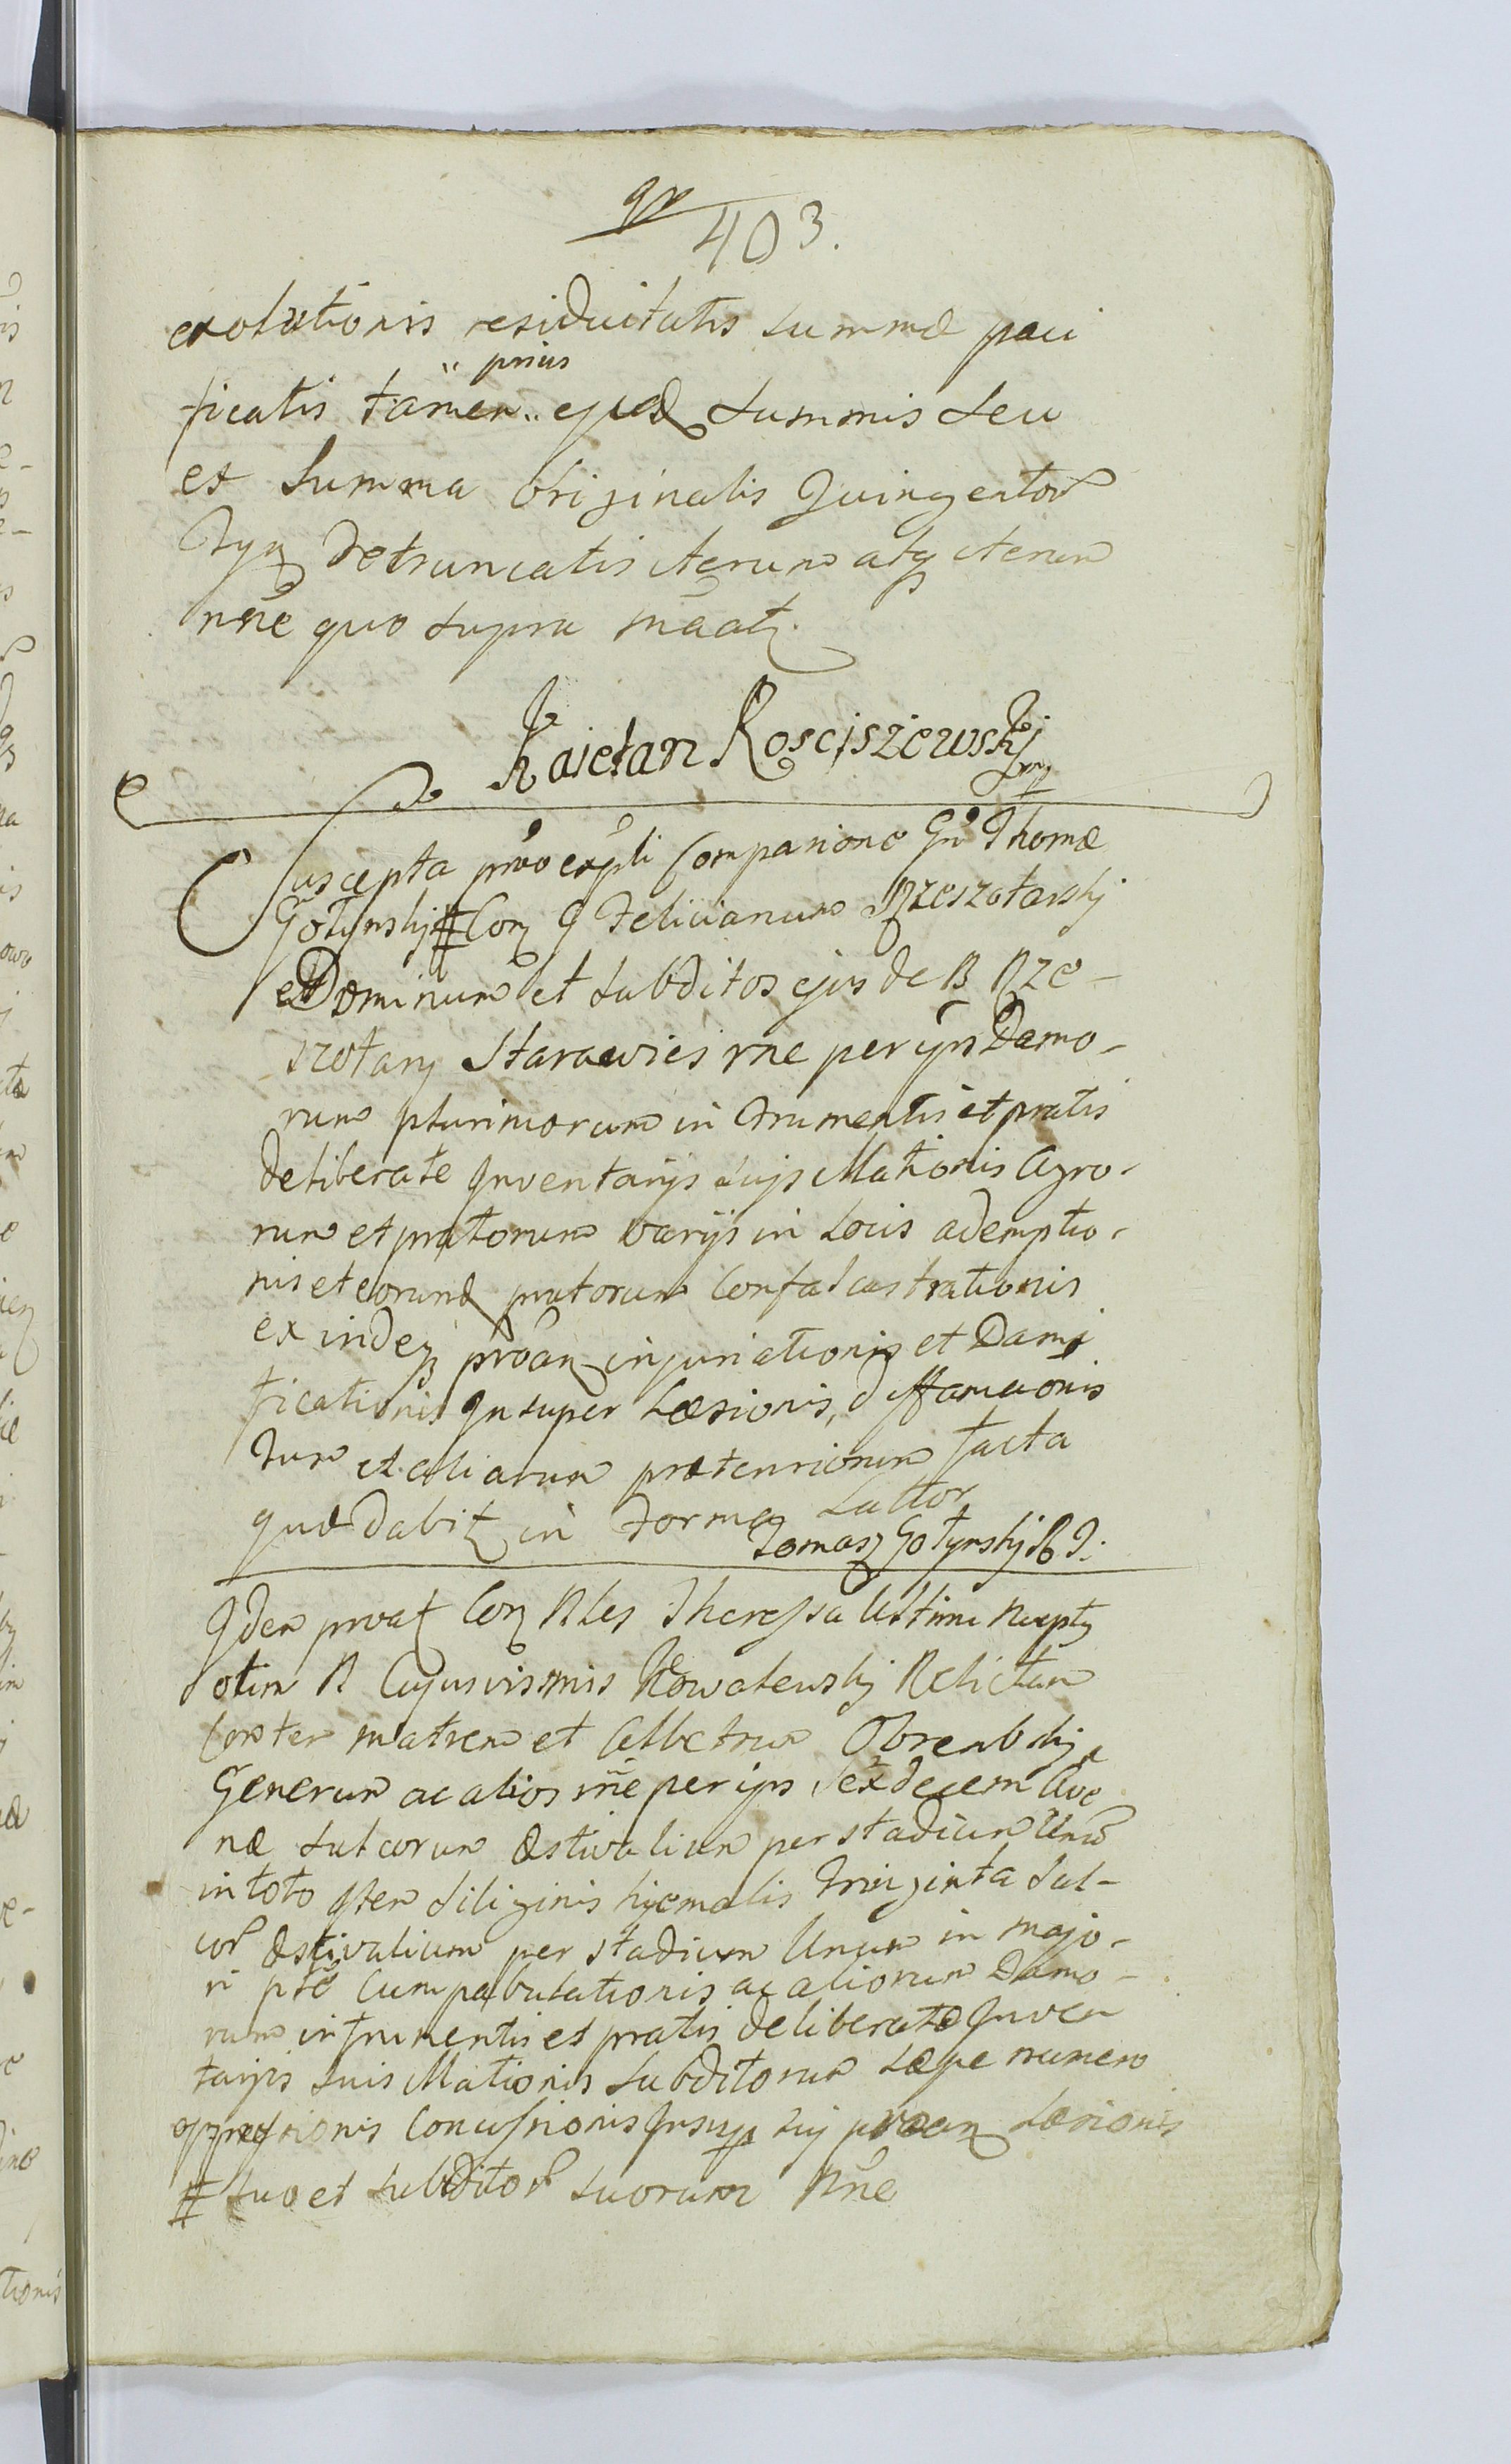 403.
exolutionis residuitatis summæ paci
ficatis tamen " prius " ejusd summis seu
ex summa originalis Quingentor
Tyn detruncatis iterum atq iterum
nne quo supra maat.
Kaietan Koscjszewskj
Suscepta prvo expli Comparione Gn Thomæ
Gołynskj # Con G Felicianum Rzeszotarskj
et Dominum et subditos ejus de B Rze-
szotary Starawies rne per ijn Damo-
rum plurimorum in frumentis et pratis
deliberate Inventarijs suijs Mationis Agro-
rum et pratorum varijs in Locis ademptio-
nis et eorund pratorum Confalcastrationis
ex indeq proan injuriationis et Damj
ficationis Insuper Læsionis, diffamaonis
Tum et aliarum prætensionum facta
quæ dabit in Forma Lattor
Tomasz Gołynskj
Idem proat Con Nles Theressa Ultim Nupty
olim N Cujusvismis Kowalewskj Relictam
Conter matrem et Albertum Obrembskj
Generum ac alios rne per ijns Sexdecem Ave
næ sulcorum æstivalium per stadium Unu
in toto Item siliginis hyemalis Triginta sul-
cor æstivalium per stadium Unum in majo-
ri pte Cum pabulationis ac aliorum Damo-
rum in frumentis et pratis deliberate Inven
tarijs suis Mationis subditorum sæpe numero
oppressionis Concussionis Insup suj proan Læsionis
# suo et subditor suorum Nne